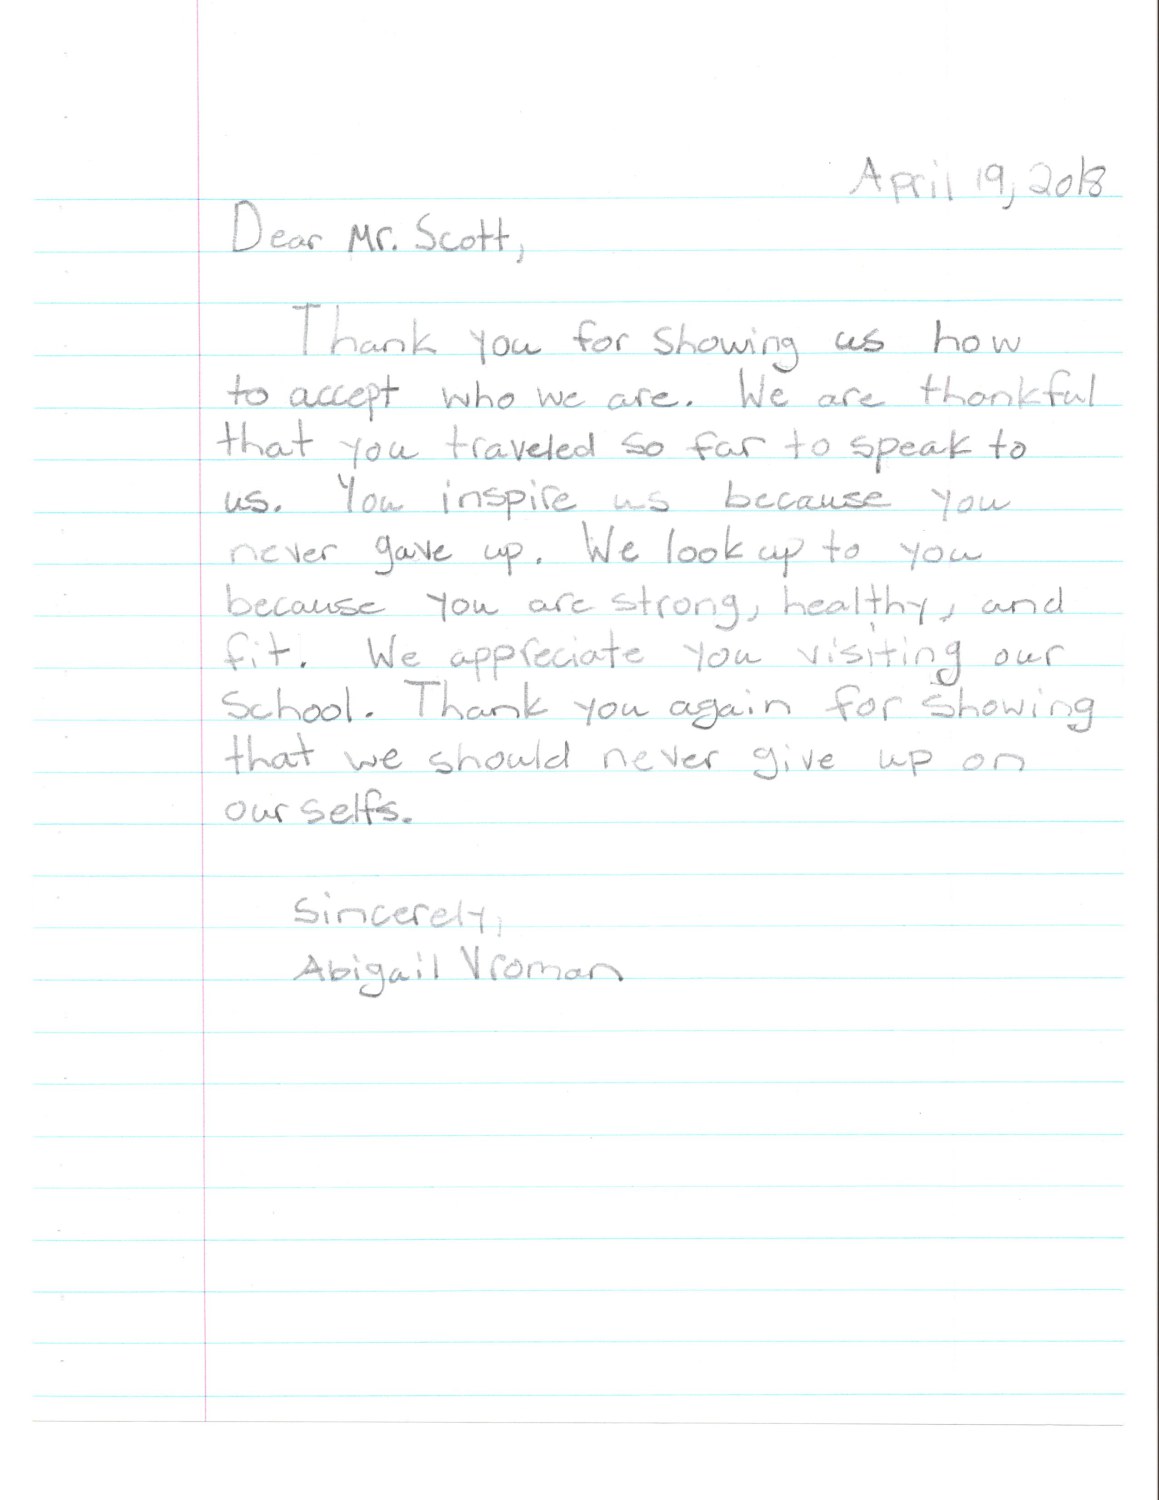 April 19, 2018
Dear Mr. Scott,
Thank you for showing us how
to accept who we are. We are thankful
that you traveled so far to speak to
us. You inspire us because you
never gave up. We look up to you
because you are strong, healthy, and
fit. We appreciate you visiting our
school. Thank you again for showing
that we should never give up on
our selfs.
Sincerely,
Abigail Vroman